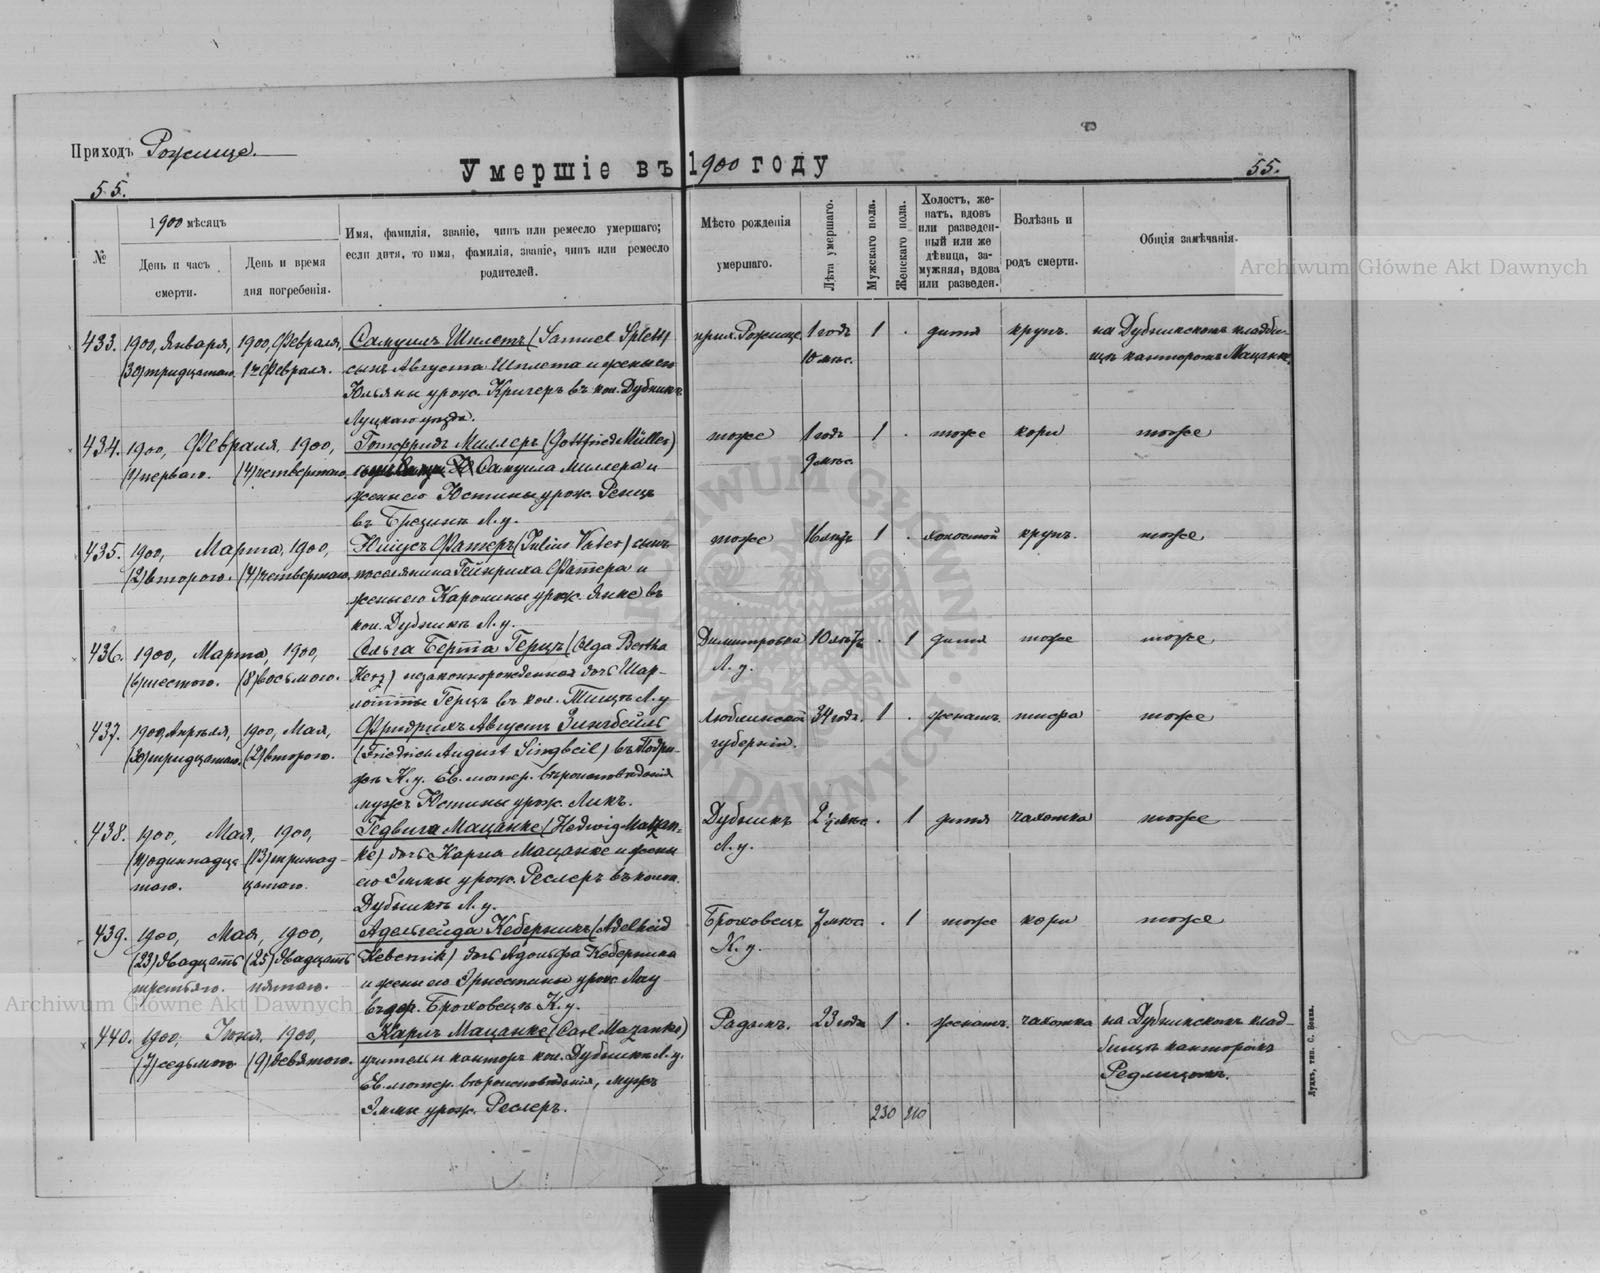 Приходъ Рожище.
Умершіе въ 1900 году
55.
55.
№
1900 мѣсяцъ
День и часъ смерти.
День и время дня погребенія.
Имя, фамилія, званіе, чинъ или ремесло умершаго;
если дитя, то имя, фамилія, званіе, чинъ или ремесло
родителей.
Мѣсто рожденія
умершаго.
Лѣта умершаго.
Мужскаго пола.
Женскаго пола.
Холостъ, же-
натъ, вдовъ
или разведен-
ный или же
дѣвица, за-
мужняя, вдова
или разведен.
Болѣзнь и
родъ смерти.
Общія замѣчанія.
Archiwum Główne Akt Dawnych
433. 1900, Января, 1900, Февраля, Самуилъ Шплетъ (Samuel Splett) Рожище 1 годъ 1 . дитя крупъ. на Дубникскомъ кладби-
(30) тридцатаго 1го Февраля. сынъ Августа Шплета и жены его 10 мѣс. щѣ канторомъ Мацанке.
Юльяны урож. Кригеръ въ кол. Дубникъ
Луцкаго уѣзда.
434. 1900, Февраля, 1900, Готфридъ Миллеръ (Gottfried Müller) тоже 1 годъ 1 . тоже кори тоже
(1) перваго. (4) четвертаго. Самуила Миллера и 9 мѣс.
жены его Юстины урож. Ренцъ
въ Брезинѣ Л. у.
435. 1900, Марта, 1900, Юліусъ Фатеръ (Julius Vater) сынъ тоже 16 лѣтъ 1 . холостой крупъ. тоже
(2) второго. (4) четвертаго. поселянина Гейнриха Фатера и
жены его Каролины урож. Янке въ
кол. Дубникъ Л. у.
436. 1900, Марта, 1900, Ольга Берта Герцъ (Olga Bertha Димитровка 10 лѣтъ . 1 дитя тоже тоже
(6) шестого. (8) восьмого. Herz) незаконнорожденная дочь Шар- Л. у.
лотты Герцъ въ кол. Л. у
437. 1900, Апрѣля, 1900, Мая, Фридрихъ Августъ Зингбейль Люблинской 34 года. 1 . женатъ. тифа тоже
(30) тридцатаго. (2) второго. (Friedrich August Singbeil) въ губерніи.
К. у. Ев. лютер. вѣроисповѣданія
мужъ Юстины урож. Ликъ.
438. 1900, Мая, 1900, Гедвига Мацанке (Hedwig Mazan- Дубникъ 2 ½ мѣс. . 1 дитя чахотка тоже
(11) одиннадца (13) тринад- ke) дочь Карла Мацанке и жены Л. у.
таго. цатаго. его Эммы урож. Реслеръ въ колон.
Дубникъ Л. у.
439. 1900, Мая, 1900, Адельгейда Кеберникъ (Adelheid Броховецъ 7 мѣс. . 1 тоже кори тоже
(23) двадцать (25) двадцать Kebernik) дочь Адольфа Кеберника К. у.
третьяго. пятаго. и жены его Эрнестины урож.
въ дер. Броховецъ К. у.
Archiwum Główne Akt Dawnych
440. 1900, Іюня, 1900, Карлъ Мацанке (Carl Mazanke) Радомъ. 23 года 1 . женатъ. чахотка на Дубникскомъ клад-
(7) седьмого (9) девятаго. учитель и канторъ кол. Дубникъ Л. у. бищѣ канторомъ
Ев. лютер. вѣроисповѣданія, мужъ Редлицомъ.
Эммы урож. Реслеръ.
230 210
Луцкъ, тип. С. Бокса.
ARCHIWUM GŁÓWNE AKT DAWNYCH